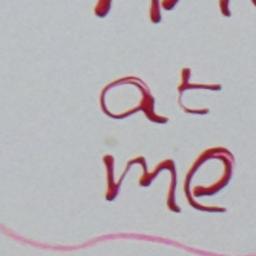 at
me